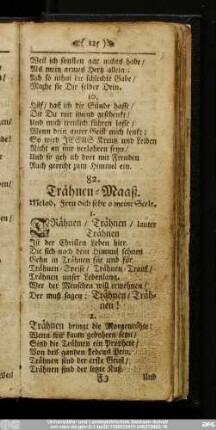 ( 125 )
Weil ich sonsten gar nichts habe/
Als mein armes Hertz allein:
Ach so nihm die schlechte Gabe/
Mache sie Dir selber Dein.
10.
Hilff/ daß ich die Sünde hasse/
Die Du mir thust geschenckt/
Und mich treulich führen lasse/
Wenn dein guter Geist mich lenkt:
So wird JESUS Kreutz und Leiden
Nicht an mir verlohren seyn/
Und so geh ich dort mit Freuden
Auch gerecht zum Himmel ein.
82.
Trähnen-Maaß.
Melod. Freu dich sehr o meine Seele.
1.
TRähnen/ Trähnen/ lauter
Trähnen
Ist der Christen Leben hier.
Die sich nach dem Himmel sehnen
Gehn in Trähnen für und für.
Trähnen-Speise/ Trähnen-Tranck/
Trähnen unser Lebenlang.
Wer der Menschen will erwehnen/
Der muß sagen: Trähnen/ Träh-
nen!
2.
Trähnen bringt die Morgenröthe:
Wenn wir kaum gebohren seyn/
Von des gantzen Lebens Pein.
Trähnen sind der erste Gruß/
Trähnen sind der letzte Kuß.
F 3
Und